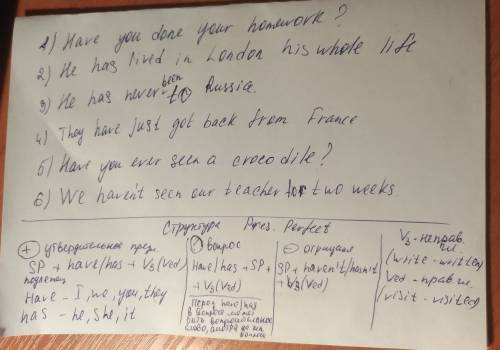 1) Have you done your homework?
2) He has lived in London his whole life
3) He has never been to Russia.
4) They have just got back from France
5) Have you ever seen a crocodile?
6) We haven't seen our teacher for two weeks.
Структура Pres. Perfect
+ утвердительное предл.
SP + have/has + V3 (Ved)
Have - I, we, you, they
has - he, she, it
? вопрос
Have/has + SP +
+ V3 (Ved)
Перед have/has
в вопросе может
быть вопросительное
слово,
вопроса
- отрицание
SP + haven't/hasn't
+ V3 (Ved)
V3 - неправ.
гл.
(write - written)
Ved - прав. гл.
(visit - visited)